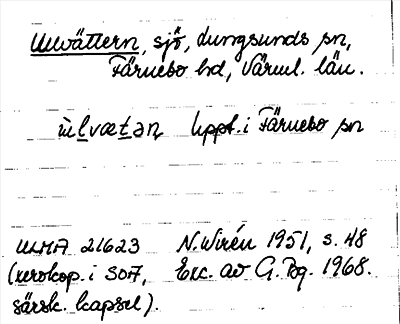 Ullvättern, sjö, Lungsunds sn,
Färnebo hd, Värml. län.
ùlvætəṇ uppt. i Färnebo sn
ULMA 21623 N. Wirén 1951, s. 48
(xerokop. i SOA, Exc. av G. Bg. 1968.
särsk. kapsel).